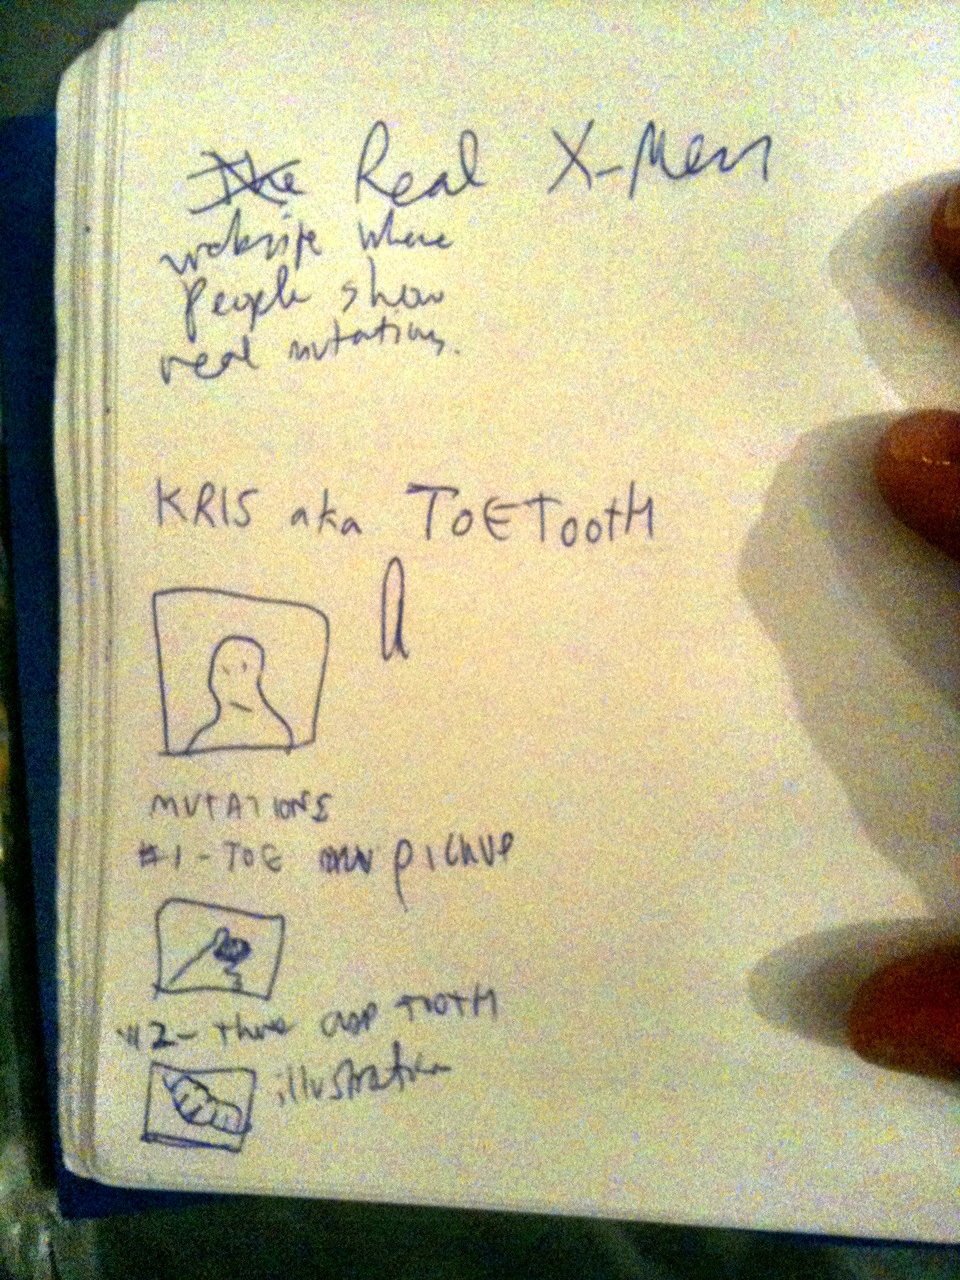 The Real X-Men
website where
people show
real mutations.
KRIS aka TOETOOTH
MUTATIONS
#1 - TOE PICKUP
#2 - Three TOOTH
illustration